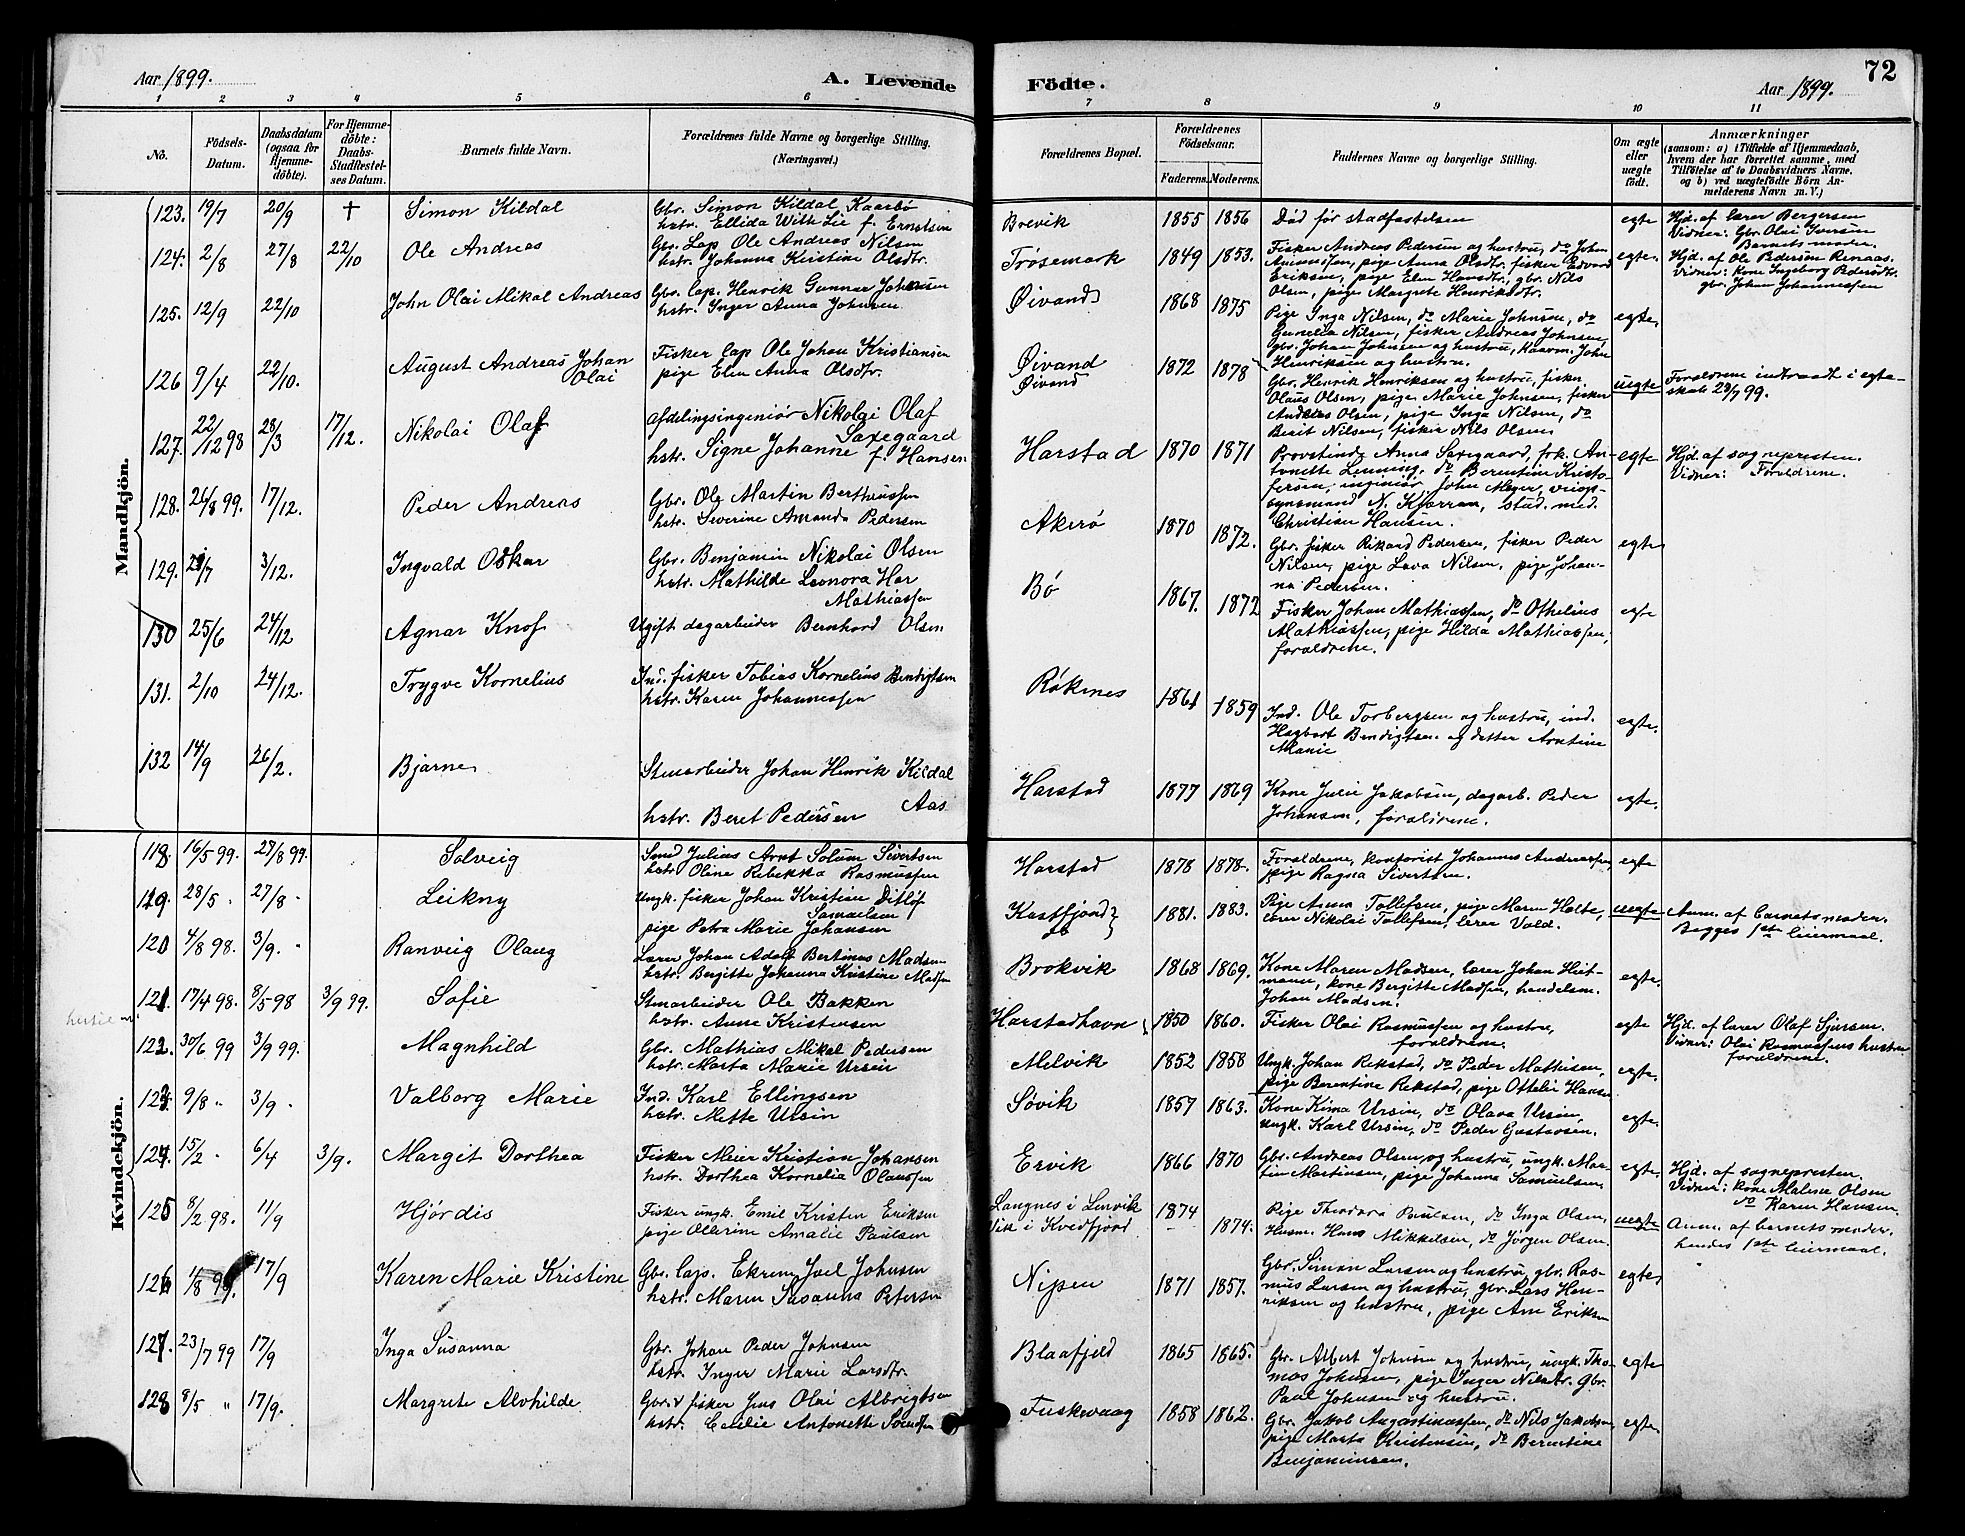 Aar 1899.
A. Levende
Födte.
72
Aar 1899.
1 2 3 4 5 6 7 8 9 10 11
No.
Födsels-
Datum.
Daabsdatum
(ogsaa for
Hjemme-
döbte).
For Hjemme-
döbte:
Daabs-
Stadfæstel-
ses Datum.
Barnets fulde Navn.
Forældrenes fulde Navne og borgerlige Stilling.
(Næringsvei.)
Forældrenes Bopæl.
Forældrenes
Födselsaar.
Faderens. Moderens.
Faddernes Navne og borgerlige Stilling.
Om ægte
eller
uægte
født.
Anmærkninger
(saasom: a) i Tilfælde af Hjemmedaab,
hvem der har forrettet samme, med
Tilföielse af to Daabsvidners Navne,
og b) ved uægtefödte Börn An-
melderens Navn m. V.)
Mandkjön.
123. 19/7 20/9 † Simon Kildal
Gbr. Simon Kildal Kaarbø
hstr. Ellida With Lie f. Erntsen
Brevik 1855 1856 Død før stadfæstelsen egte
Hjd. af lærer Bergersen
Vidner: Gbr. Olai
Barnets moder.
124. 2/8 27/8 22/10 Ole Andreas
Gbr. Lap Ole Andreas Nilsen
hstr. Johanna Kristine Olsdtr.
Trøsemark 1849 1853.
Fisker Andreas Pedersen og hustru, do John
pige Anna Olsdtr. fisker Edvard
Eriksen, pige Elen Hansdtr., gbr. Nils
Olsen, pige Margrete Henriksdtr.
egte.
Hjd. af Ole Pedersen Renaas.
Vidner: Kone Ingeborg Pedersdtr.
gbr. Johan Johannessen
125. 12/9 22/10 John Olai Mikal Andreas
Gbr. Lap. Henrik Gunnar Johnsen
hstr. Inger Anna Johnsen
Øivand 1868 1875
Pige Inga Nilsen, do Marie Johnson, do
Gunelia Nilsen, fisker Andreas Johnsen,
gbr. Johan Johnsen og hustru, Kaarm. John
Henriksen og hustru.
egte.
126 9/4 22/10. August Andreas Johan
Olai
Fisker Lap Ole Johan Kristiansen
pige Elen Anna Olsdtr.
Øivand
Øivand
1872 1878
Gbr. Henrik Henriksen og hustru, fisker
Olaus Olsen, pige Marie Johnsen, fisker
Andreas Olsen, pige Inga Nilsen, do
Berit Nilsen, fisker Nils Olsen
uegte
Forældrene indtraadt i egte-
skab 29/7 99.
127. 22/12 98 28/3 17/12. Nikolai Olaf
Afdelingsingeniør Nikolai Olaf
Saxegaard
hstr. Signe Johanne f. Hansen
Harstad 1870 1871
Provstinde Anna Saxegaard, frk. An-
tonette Lenning, do Berentine Kristo-
fersen, ingeniør John Meyer, veiop-
synsmand N. Kjørran, stud. med.
Christian Hansen.
egte
Hjd. af sognepresten.
Vidner: Forældrene.
128. 26/8 99. 17/12. Peder Andreas
Gbr. Ole Martin Bertheussen
hstr. Severine Amanda Pedersen
Akerø 1870 1872.
Gbr. fisker Rikard Pedersen, fisker Peder
Nilsen, pige Lava Nilsen, pige Johan-
na Pedersen.
egte
129. 29/7 3/12. Ingvald Oskar
Gbr. Benjamin Nikolai Olsen
hstr. Mathilde Leonora Har
Mathiassen
Bø 1867. 1872
Fisker Johan Mathiassen, do Othelius
Mathiassen, pige Hilda Mathiassen,
forældrene.
egte
130 25/6 24/12 Agnar Knof
Ugift dagarbeider Bernhard Olsen
131. 2/10 24/12. Trygve Kornelius
Ind. fisker Tobias Kornelius Bendigtsen
hstr. Karen Johannessen
Røkenes 1861 1859
Ind. Ole Torbergsen og hustru, ind.
Hagbart Bendigtsen og datter Arntine
Marie
egte.
132 14/9 26/2. Bjarne
Stenarbeider Johan Henrik Kildal
Aas
hstr. Beret Pedersen
Harstad 1877 1869
Kone Julie Jakobsen, dagarb. Peder
Johansen, forældrene.
egte.
Kvindekjön.
118. 16/5 99. 27/8 99. Solveig
Smed Julius Arnt Solum Sivertsen
hstr Oline Rebekka Rasmussen
Harstad 1878 1878.
Forældrene, kontorist Johannes Andreassen,
pige Ragna Sivertsen.
egte
119. 28/5 27/8 Leikny
Ungk. fisker Johan Kristian Ditløf
Samuelsen
pige Petra Marie Johansen
Kastfjord
do
1881. 1883.
Pige Anna Tollefsen, pige Maren Holte,
lærer Nikolai Tollefsen, lærer Vold.
uegte
Anm. af barnets moder.
Begges 1ste leiermaal.
120 4/8 98. 3/9. Ranveig Olaug
Lærer Johan Adolf Bertinus Madsen
hstr. Bergitte Johanna Kristine Madsen
Brokvik 1868 1869.
Kone Maren Madsen, lærer Johan Heit-
mann, kone Bergitte Madsen, handelsm.
Johan Madsen.
egte.
121 17/4 98. 8/5 98 3/9 99. Sofie
Stenarbeider Ole Bakken
hstr. Anne Kristensen
Harstadhavn 1850 1860.
Fisker Olai Rasmussen og hustru,
forældrene.
egte
Hjd. af lærer Olaf Sjursen.
Vidner: Olai Rasmussens hustru
forældrene.
122. 30/6 99 3/9 99. Magnhild
Gbr. Mathias Mikal Pedersen
hstr. Marta Marie Ursin
Melvik 1852 1858
Ungk. Johan Rekstad, do Peder Mathisen,
pige Berentine Rekstad, pige Ottelie Hansen
egte.
123. 9/8 3/9 Valborg Marie
Ind. Karl Ellingsen
hstr. Mette Ursin
Søvik 1857 1863.
Kone Kima Ursin, do Olava Ursin,
ungk. Karl Ursin, do Peder Gustavsen.
egte.
124. 15/2 6/4 3/9. Margit Dorthea
Fisker Meier Kristian Johansen
hstr. Dorthea Kornelia Olaussen
Ervik 1866 1870
Gbr. Andreas Olsen og hustru, ungk. Mar-
tin Martinsen, pige Johanna Samuelsen.
egte.
Hjd. af sognepresten.
Vidner: kone Malene Olsen
do Karen Hansen.
125 8/2 98. 11/9 Hjørdis
Fisker ungk. Emil Kristen Eriksen
pige Ollerine Amalie Paulsen
Langnes i Lenvik
Vik i Kvedfjord
1874 1874.
Pige Theodora Paulsen, do Inga Olsen,
Husm. Hans Mikkelsen, do Jørgen Olsen.
uegte
Anm. af barnets moder.
hendes 1ste leiermaal.
126 1/8 99. 17/9 Karen Marie Kristine
Gbr. Lap. Ekrem Joel Johnsen
hstr. Maren Susanna Petersen
Nipen 1871 1857.
Gbr. Simon Larsen og hustru, gbr. Ras-
mus Larsen og hustru, gbr. Lars Hen-
riksen og hustru, pige Ane Eriksen
egte
127. 23/7 99 17/9 Inga Susanna
Gbr. Johan Peder Johnsen
hstr. Inger Marie Larsdtr.
Blaafjeld 1865 1865.
Gbr. Albert Johnsen og hustru, ungk. Tho-
mas Johnsen, pige Inger Nilsdtr. Gbr.
Paul Johnsen og hustru.
egte
128 8/5 " 17/9. Margrete Alvhilde
Gbr. fisker Jens Olai Albrigtsen
hstr. Cecilie Antonette Svendsen
Fuskevaag 1858 1862.
Gbr. Jakob Augustinussen, do Nils Jakobsen,
pige Marta Kristensen, do Berentine
Benjaminsen.
egte.